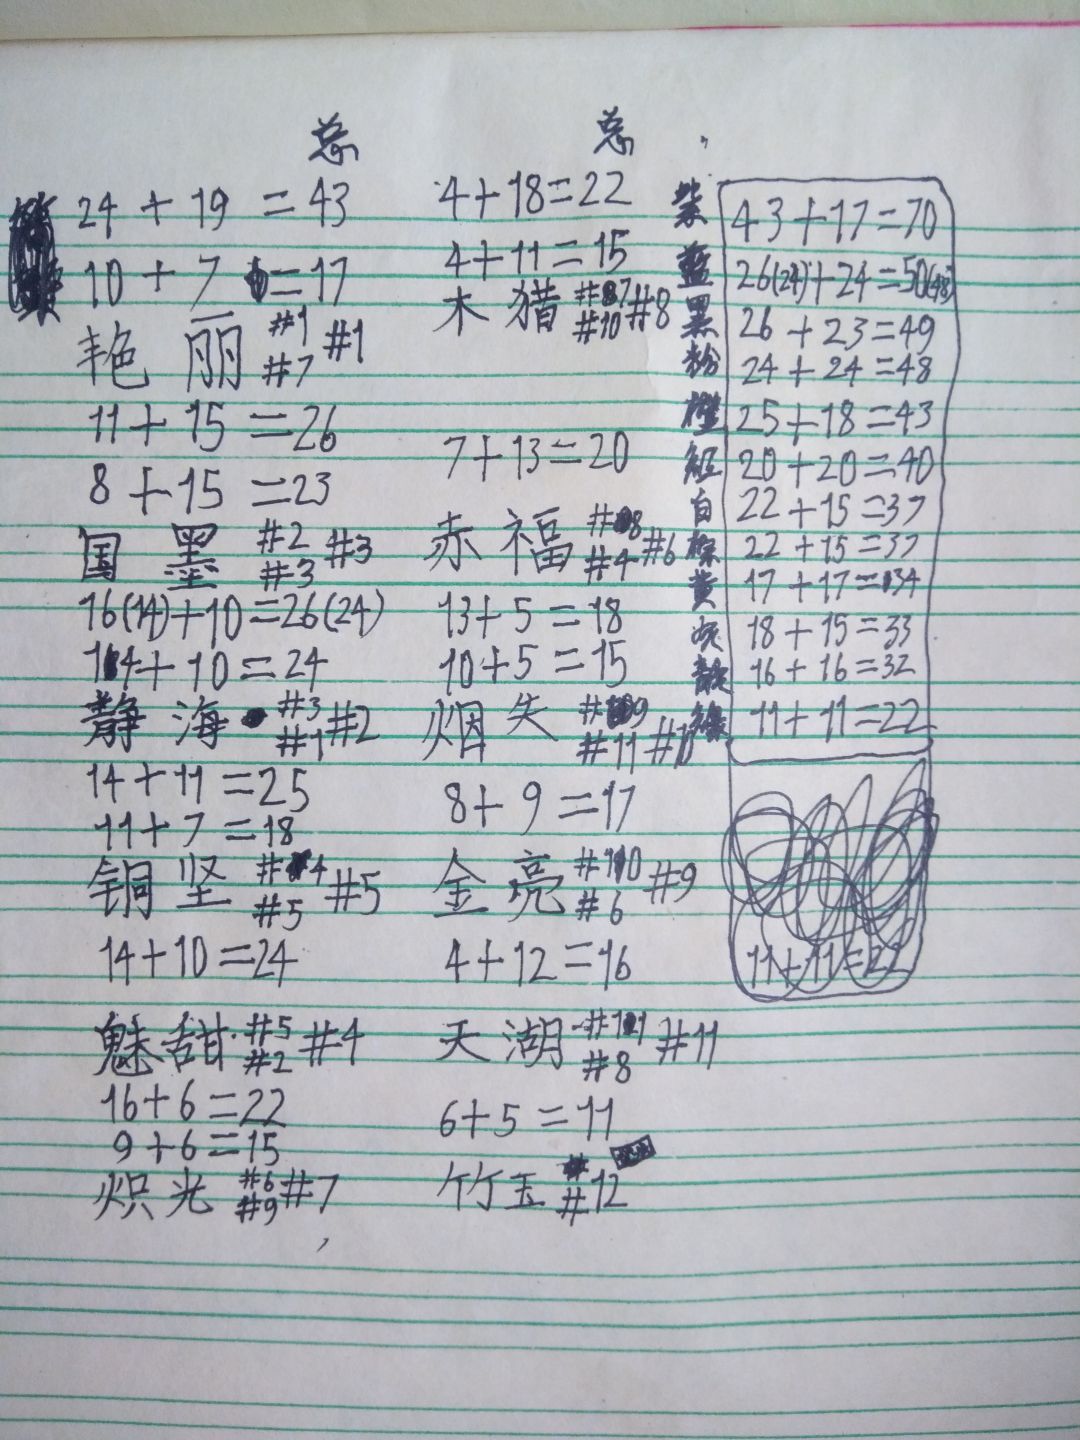 总
24 + 19 = 43
10 + 7 = 17
艳 丽 #1 #7 #1
11 + 15 = 26
8 + 15 = 23
国 墨 #2 #3 #3
16(14) + 10 = 26(24)
14 + 10 = 24
静 海 #3 #1 #2
14 + 11 = 25
11 + 7 = 18
铜 坚 #4 #5 #5
14 + 10 = 24
魅 甜 #5 #2 #4
16 + 6 = 22
9 + 6 = 15
炽 光 #6 #9 #7
总
4 + 18 = 22
4 + 11 = 15
木 猎 #7 #10 #8
7 + 13 = 20
赤 福 #8 #4 #6
13 + 5 = 18
10 + 5 = 15
烟 失 #9 #11 #10
8 + 9 = 17
金 亮 #10 #6 #9
4 + 12 = 16
天 湖 #11 #8 #11
6 + 5 = 11
竹 玉 #12
紫 43 + 17 = 70
蓝 26(24) + 24 = 50(48)
黑 26 + 23 = 49
粉 24 + 24 = 48
橙 25 + 18 = 43
红 20 + 20 = 40
白 22 + 15 = 37
棕 22 + 15 = 37
黄 17 + 17 = 34
灰 18 + 15 = 33
16 + 16 = 32
绿 11 + 11 = 22
11 + 11 = 22